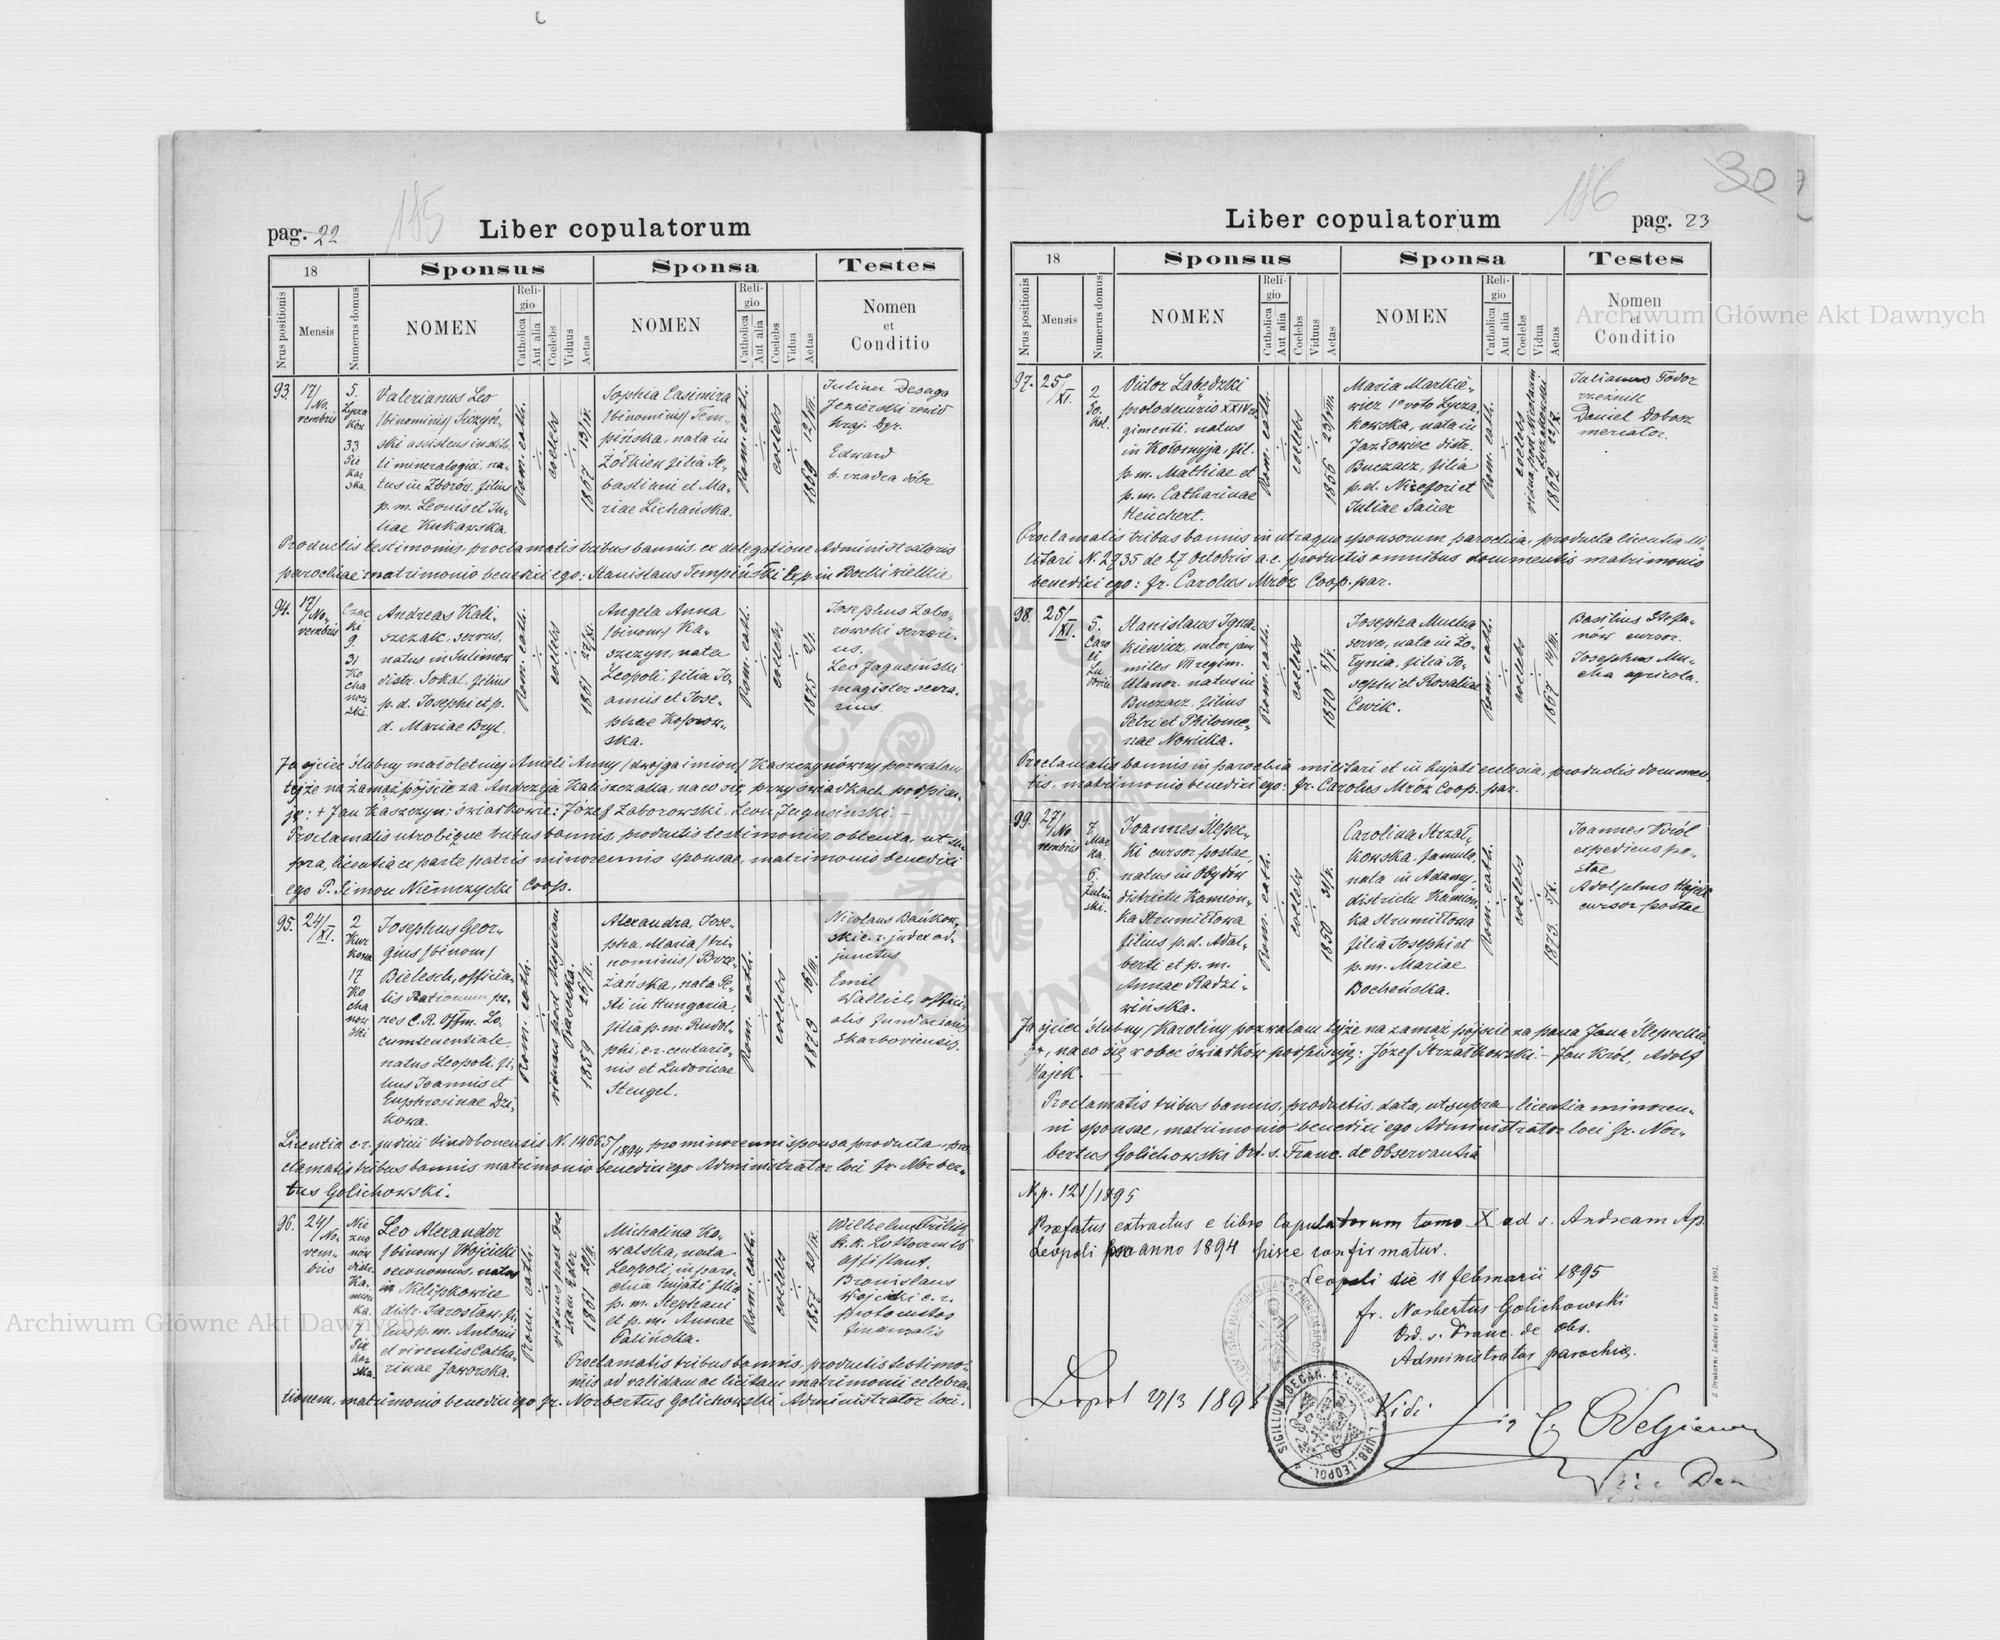 pag. 22
185
Liber copulatorum
18
Sponsus
Sponsa
Testes
Nrus positionis
Mensis
Numerus domus
NOMEN
Religio
Catholica
Aut alia
Coelebs
Viduus
Aetas
NOMEN
Religio
Catholica
Aut alia
Coelebs
Vidua
Aetas
Nomen
et
Conditio
93.
17/
No
vembris
5.
Łycza
ków
33
Pie
kar
ska.
Valerianus Leo
/binominis/ Siczyń-
ski assistens in
mineralogia, na-
tus in Zborów. filius
p. m. Leonis et Ju-
liae Kukawska.
Rom. cath.
coelebs
1867
Sophia Casimira
/binominis/ Tem-
pińska, nata in
Żółkiew filia Se-
bastiani et Ma-
riae Lichańska.
Rom. cath.
coelebs
1869
Julian Desaga
Jezierski
kraj.
Edward
b. rządca dóbr
Productis testimoniis, proclamatis tribus bannis, ex delegatione Administratoris
parochiae matrimonio benedixi ego: Stanislaus Tempiński Exp. in Borki wielkie
94.
17/
No-
vembris
Czac
ki
9.
31
Ko
cha
now
ski.
Andreas Kali-
szczak, servus,
natus in Sulimow
distr. Sokal, filius
p. d. Josephi et p.
d. Mariae Bryl.
Rom. cath.
coelebs
1861 27/XI.
Angela Anna
/binom/ Ka-
szczyn, nata
Leopoli, filia Jo-
annis et Jose-
phae Koprow-
ska.
Rom. cath.
coelebs
1875
Josephus Zabo-
rowski serrari-
us.
Leo Jagusinski
magister serra-
rius.
Ja ojciec ślubny małoletniej Anieli Anny /dwojga imion/ Kaszczynówny pozwalam
tejże na zamążpójście za Andrzeja Kaliszczaka, na co się przy świadkach podpisu-
ję: + Jan Kaszczyn: świadkowie: Józef Zaborowski, Leon Jagusinski. -
Proclamatis utrobique tribus bannis, productis testimoniis, obtenta, ut su-
pra, licentia ex parte patris minorennis sponsae, matrimonio benedixi
ego P. Simon Niemczycki Coop.
95.
24/
XI.
2
Kur
kowa
17
Ko
cha
now
ski
Josephus Geor-
gius /binom/
Bielesch, officia-
lis Rationum pe-
nes C. R. Offm. Lo-
cumtenentiale,
natus Leopoli, fi-
lius Joannis et
Euphrosinae Dzi-
kowa.
Rom. cath.
viduus post
1859 26/II.
Alexandra, Jose-
pha, Maria /tri-
nominis/ Brze-
żańska, nata Pe-
sti in Hungaria,
filia p. m. Rudol-
phi, c. r. centurio-
nis et Ludovicae
Stengel.
Rom. cath.
coelebs
1873 18/III.
Nicolaus Bańkow-
ski c. r. judex ad-
junctus
Emil
Wallich, offici-
alis fundationis
Skarboviensis.
Licentia c. r. judicii Vindobonensis N. 14665/1894 pro minorenni sponsa producta, pro
clamatis tribus bannis matrimonio benedixi ego Administrator loci fr. Norber-
tus Golichowski.
96.
24/
No-
vem-
bris
Nie
zna
nów
distr.
Ka-
mion
ka.
7
Pie
kar
ska.
Leo Alexander
/binom/ Wojcicki
oeconomus, natus
in Mielipkowice
distr. Jarosław, fi-
lius p. m. Antonii
et viventis Catha-
rinae Jaworska.
Rom. cath.
viduus post
1861
Michalina Ko-
walska, nata
Leopoli, in paro-
chia hujati filia
p. m. Stephani
et p. m. Annae
Palińska.
Rom. cath.
coelebs
1857
Wilhelm
k. k.
Assistent.
Bronislaus
Wojcicki c. r.
finansalis
Proclamatis tribus bannis, productis testimo-
niis ad validam ac licitam matrimonii celebra-
tionem, matrimonio benedixi ego fr. Norbertus Golichowski Administrator loci.
186
30
Liber copulatorum
pag. 23
18
Sponsus
Sponsa
Testes
Nrus positionis
Mensis
Numerus domus
NOMEN
Religio
Catholica
Aut alia
Coelebs
Viduus
Aetas
NOMEN
Religio
Catholica
Aut alia
Coelebs
Vidua
Aetas
Nomen
et
Conditio
97.
25/
XI.
2
So
kol.
Victor Łabędzki
protodecurio XXIV re-
gimenti. natus
in Kołomyja, fil.
p. m. Mathiae et
p. m. Catharinae
Heuchert.
Rom. cath.
coelebs
1866 23/VII.
Maria Markie-
wicz 1º voto Łycza-
kowska, nata in
Jazłowiec distr.
Buczacz, filia
p. d. Nicefori et
Juliae Sauer
Rom. cath.
vidua post Nicolaum
Łyczakowski
1862
Julianus Fodor
rzeznik
Daniel Dobosz
mercator.
Proclamatis tribus bannis in utraque sponsorum parochia, producta licentia mi-
litari N. 2735 de 27 Octobris a. c. productis omnibus documentis matrimonio
benedixi ego: fr. Carolus Mróz Coop. par.
98.
25/
XI.
5.
Caro
li
Lu
dovici
Stanislaus Igna-
kiewicz, sutor, jam
miles VII regim.
Ulanor. natus in
Buczacz, filius
Petri et Philome-
nae Nowicka.
Rom. cath.
coelebs
1870
Josepha Mucha
serva, nata in Ło-
tynia, filia Jo-
sephi et Rosaliae
Ćwik.
Rom. cath.
coelebs
1867
Basilius Stefa-
nów cursor.
Josephus Mu-
cha agricola.
Proclamatis bannis in parochia militari et in hujati ecclesia, productis documen-
tis, matrimonio benedixi ego: fr. Carolus Mróz Coop. par.
99.
27/
No
vembris
7
Mar
ka.
6.
Zuliń
ski.
Joannes Ślepec-
ki cursor postae,
natus in Obydów
districtu Kamion-
ka Strumiłłowa
filius p. d. Adal-
berti et p. m.
Annae Radzi-
wińska.
Rom. cath.
coelebs
1850
Carolina Strzał-
kowska, famula,
nata in Adamy,
districtu Kamion-
ka Strumiłłowa
filia Josephi et
p. m. Mariae
Bocheńska.
Rom. cath.
coelebs
1873.
Joannes Król
expediens po-
stae
Adolphus Hajek
cursor postae
Ja ojciec ślubny /Karoliny pozwalam tejże na zamąż pójście za pana Jana Ślepeckie
go, na co się wobec świadków podpisuję: Józef Strzałkowski. - Jan Król, Adolf
Hajek.
Proclamatis tribus bannis, productis, data, ut supra, licentia minoren-
ni sponsae, matrimonio benedixi ego Administrator loci fr. Nor-
bertus Golichowski Ord. s. Franc. de Observantia
N. p. 121/1895
Praefatus extractus e libro Copulatorum tomo X ad s. Andream Ap.
Leopoli pro anno 1894 hisce confirmatur.
Leopoli die 11 februarii 1895
fr. Norbertus Golichowski
Ord. s. Franc. de obs.
Administrator parochiae.
Leopol 29/3 1895
Vidi
SIGILLUM DECAN. URB. LEOPOL.
Z Drukarni Ludowej we Lwowie 1891.
Archiwum Główne Akt Dawnych
Archiwum Główne Akt Dawnych